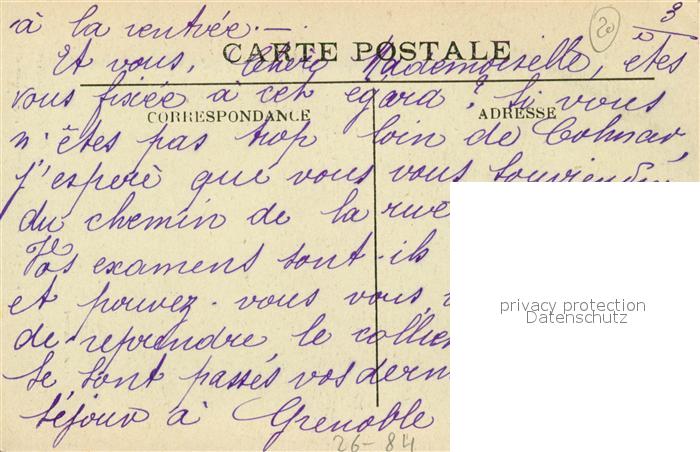 à la rentrée. —
20
3
CARTE POSTALE
Et vous, Chère Mademoiselle, êtes
vous fixée à cet égard? Si vous
CORRESPONDANCE
ADRESSE
n'êtes pas trop loin de Colmar,
j'espère que vous vous souviendr
du chemin de la rue
Vos examens sont-ils
et pouvez-vous vous,
privacy protection
Datenschutz
de reprendre le collier
se sont passés vos dern
séjour à Grenoble
26-84